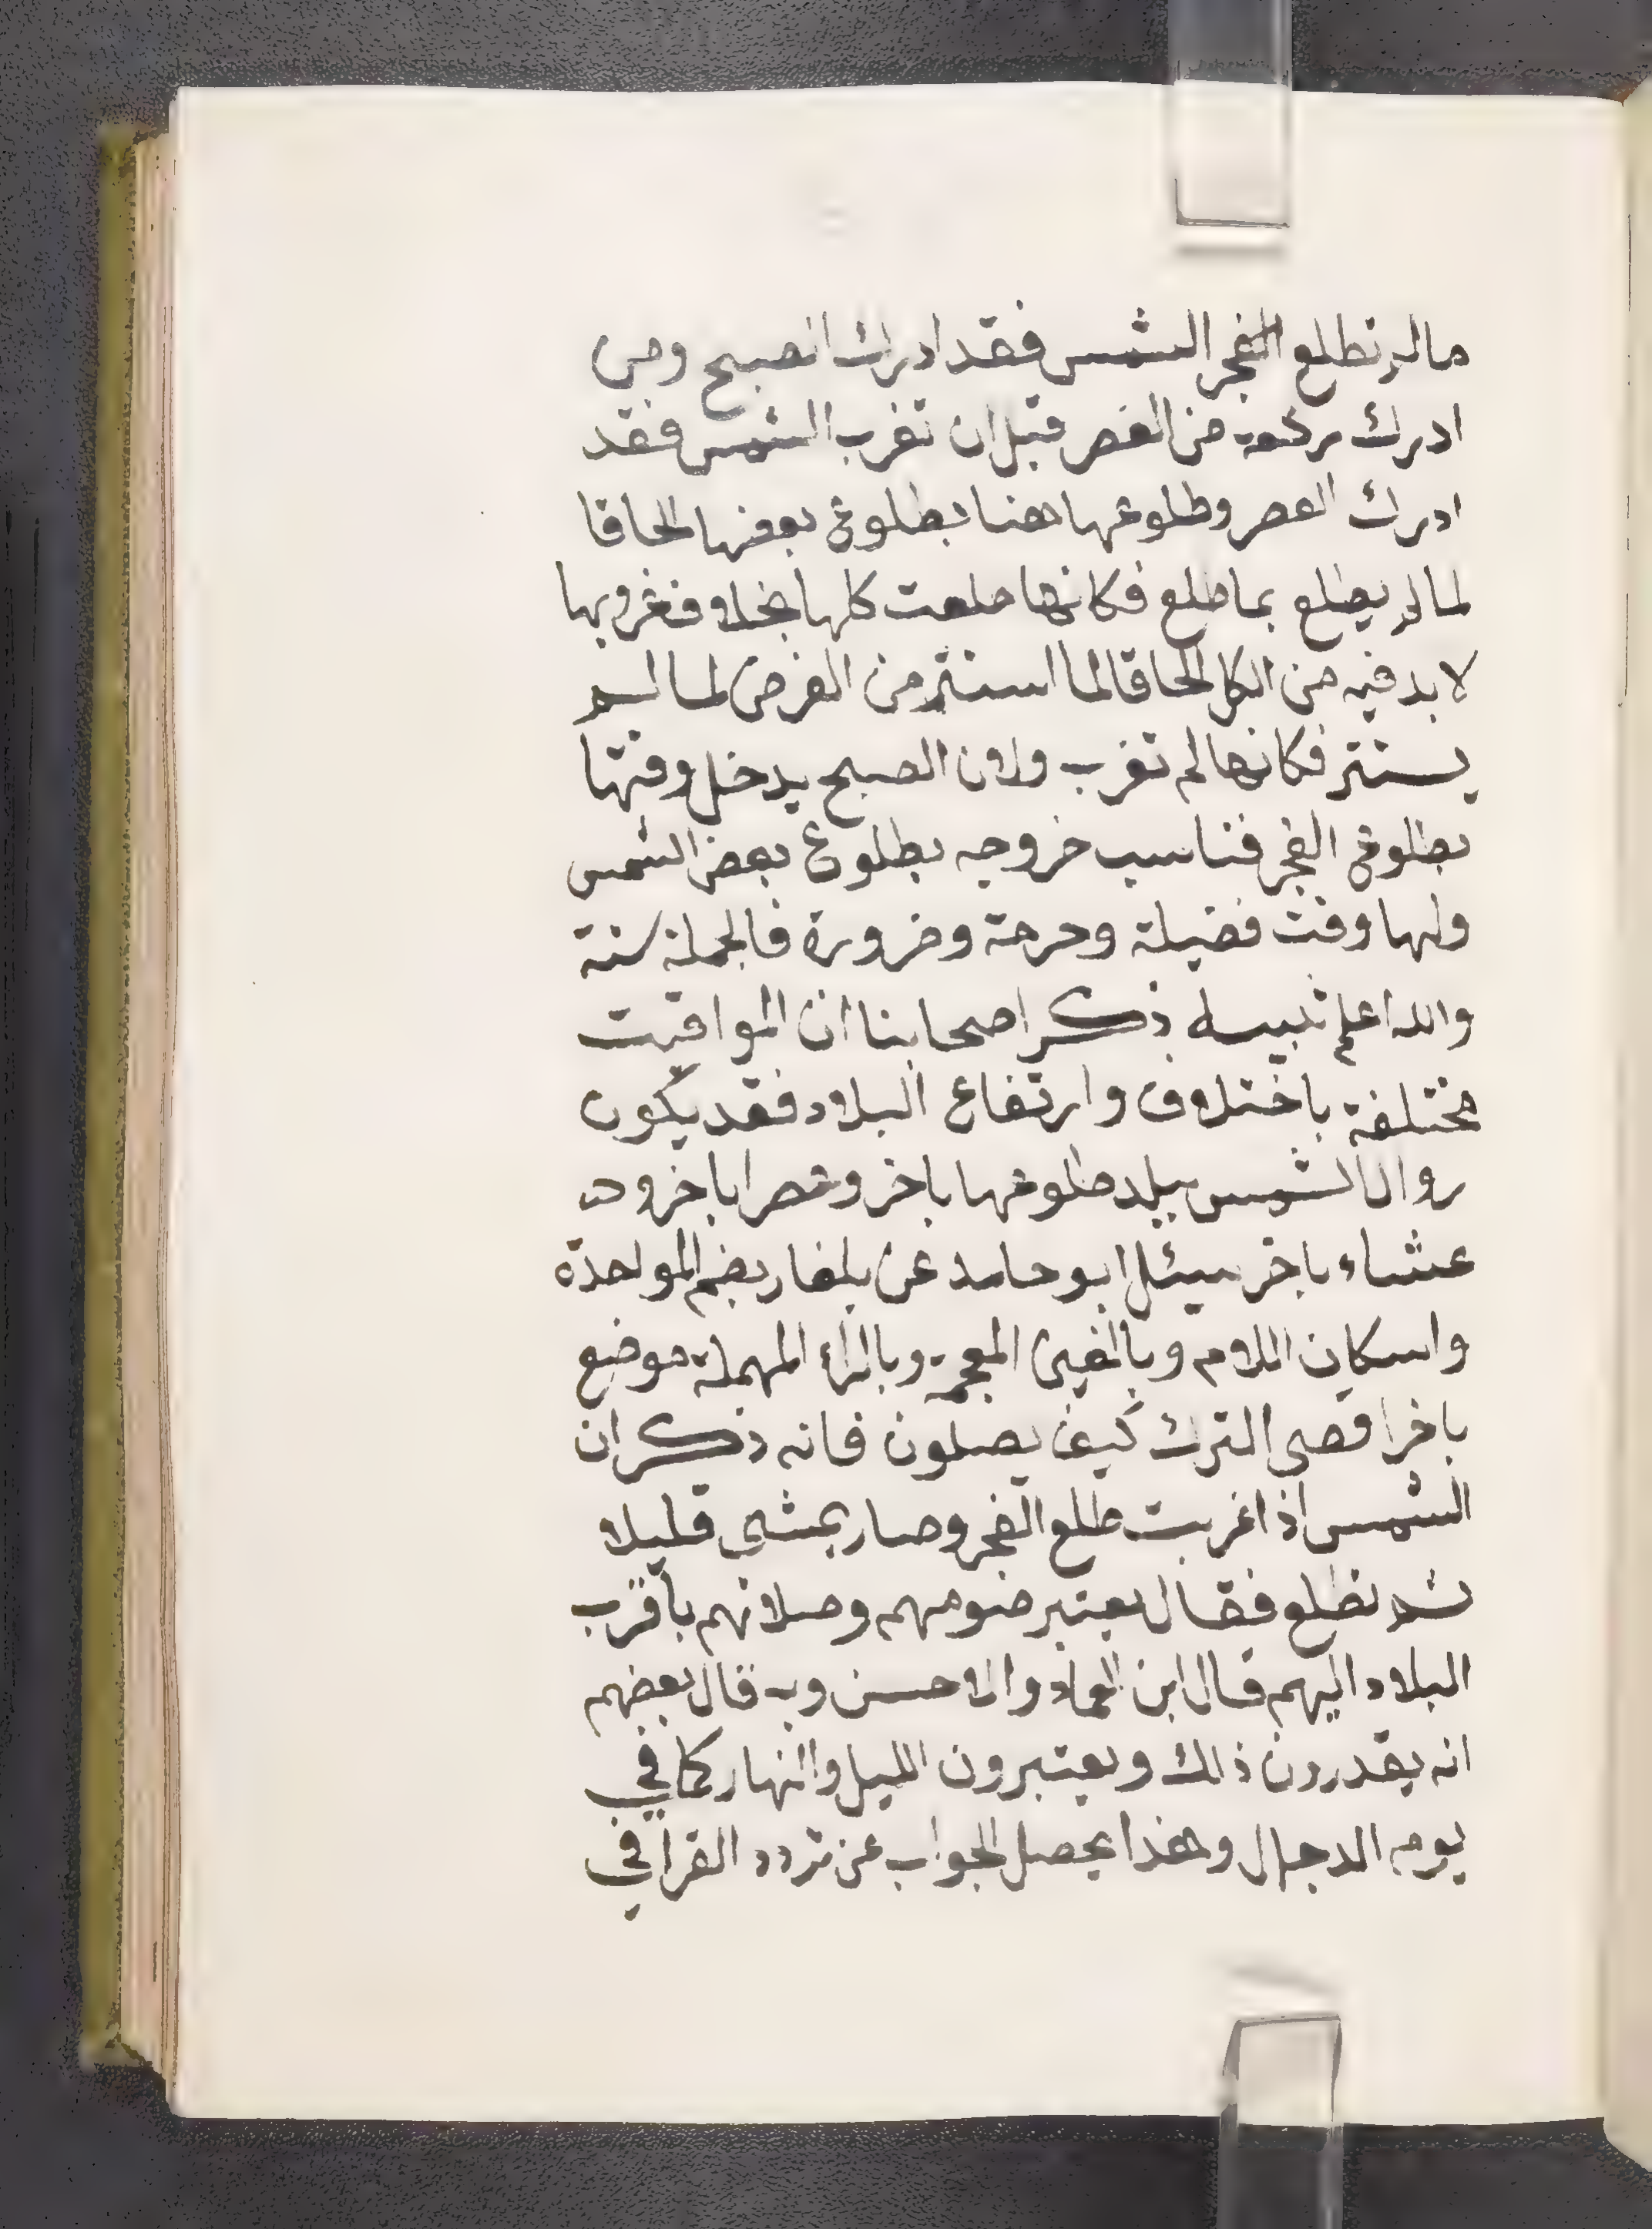 مالم تطلع الفجر الشمس فقد ادرك الصبح ومن
ادرك ركعة من العصر قبل ان تغرب الشمس فقد
ادرك العصر وطلوعها هنا بطلوع بعضها الحاقا
لما لم يطلع بما طلع فكانها طلعت كلها بخلاف غروبها
لا بد فيه من الكل الحاقا لما استتر من القرص لما لم
يستتر فكانها لم تغرب ولان الصبح يدخل وقتها
بطلوع الفجر فناسب خروجه بطلوع بعض الشمس
ولها وقت فضيلة وحرمة وضرورة فالجملة ستة
والله اعلم تنبيه ذكر اصحابنا ان المواقيت
مختلفة باختلاف وارتفاع البلاد فقد يكون
زوال الشمس ببلد طلوعها باخر وعصرا باخر و
عشاء باخر سئل ابو حامد عن بلغار بضم الموحدة
واسكان اللام وبالغين المعجمة وبالراء المهملة موضع
باخر اقصى الترك كيف يصلون فانه ذكر ان
الشمس اذا غربت طلع الفجر وصار يمشى قليلا
ثم تطلع فقال يعتبر صومهم وصلاتهم باقرب
البلاد اليهم قال ابن العماد والاحسن وبه قال بعضهم
انه يقدرون ذلك ويعتبرون الليل والنهار كما في
يوم الدجال وهذا يحصل الجواب عن تردد القرافي